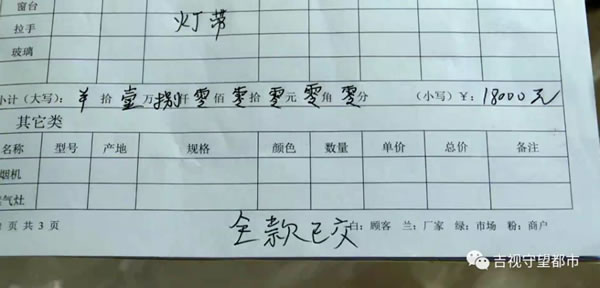 窗台
拉手
灯带
玻璃
小计（大写）： ¥ 拾 壹 万 捌 仟 零 佰 零 拾 零 元 零 角 零 分 （小写）￥： 18000元
其它类
名称 型号 产地 规格 颜色 数量 单价 总价 备注
烟机
气灶
页 共 3 页
全款已交
白：顾客 兰：厂家 绿：市场 粉：商户
吉视守望都市